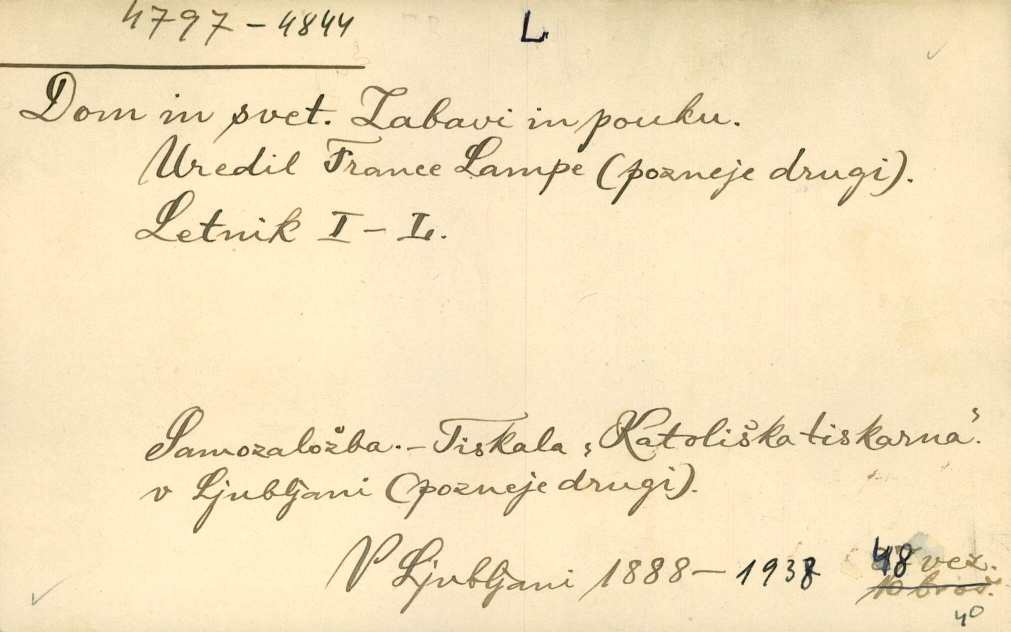 4797-4844
L
Dom in svet. Zabavi in pouku.
Uredil France Lampe (pozneje drugi).
Letnik I - L.
Samozaložba. - Tiskala "Katoliška tiskarna"
v Ljubljani (pozneje drugi).
V Ljubljani 1888 - 1938
48 vez.
10 broš.
4°